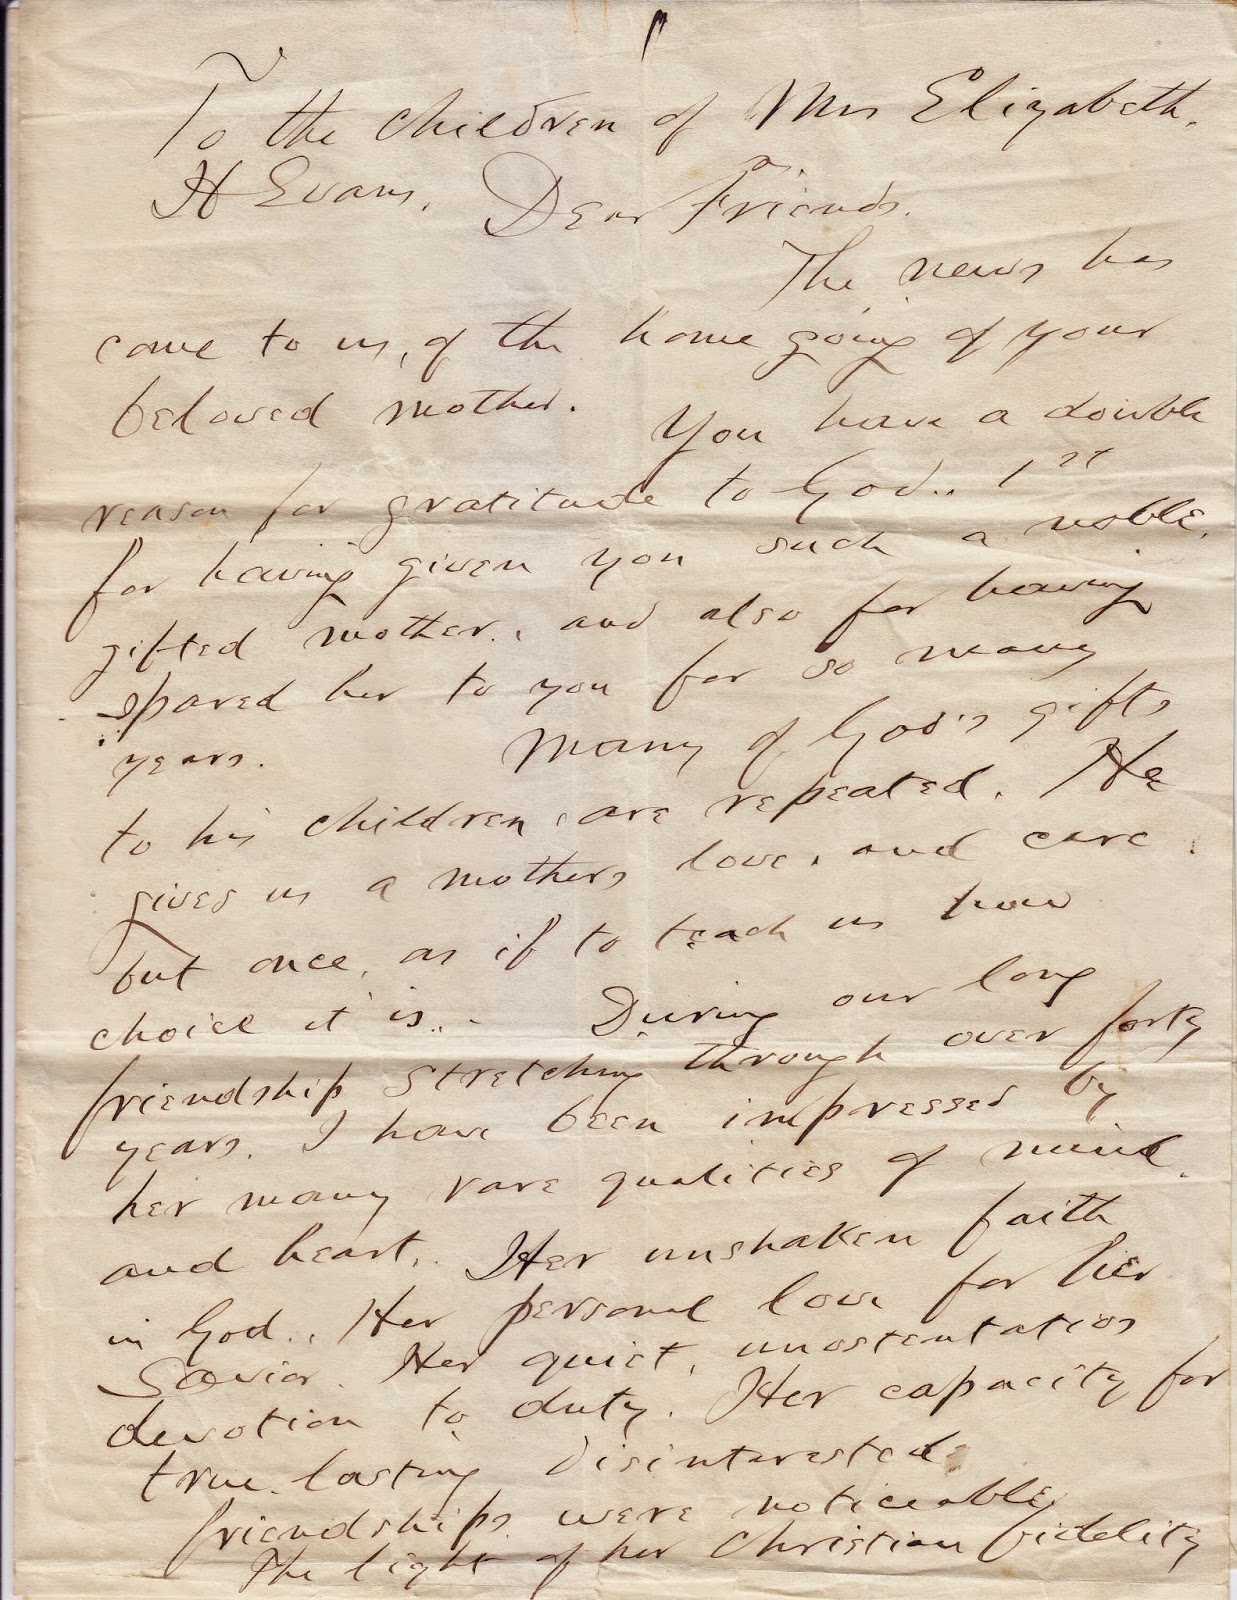 To the children of Mrs Elizabeth.
H Evans. Dear Friends.
The news has
come to us, of the home going of your
beloved mother. You have a double
reason for gratitude to God.. 1st
for having given you such a noble,
gifted mother, and also for having
spared her to you for so many
years. Many of God's gifts
to his children are repeated. He
gives us a mothers love, and care
but once, as if to teach us how
choice it is.. - During our long
friendship stretching through over forty
years. I have been impressed by
her many rare qualities of mind
and heart. Her unshaken faith
in God.. Her personal love for her
Savior. Her quiet, unostentatios
devotion to duty. Her capacity for
true lasting disinterested
friendships were noticeable
The light of her Christian fidelity